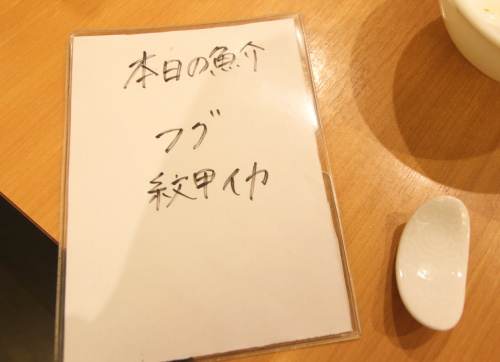 本日の魚介
フグ
紋甲イカ